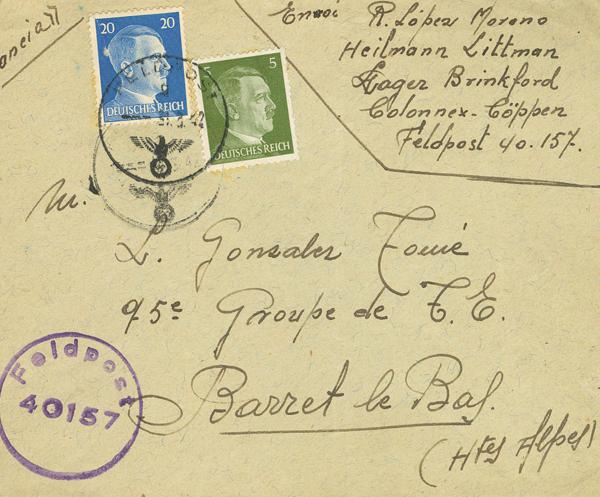 20 20
DEUTSCHES REICH
5
DEUTSCHES REICH
Envoi R. López Moreno
Heilmann Littman
Lager Brinkford
Colonnex-Cöppen
Feldpost 40.157.
M.
L. Gonzalez
95e Groupe de T.E.
Barret le Bas.
(Htes Alpes)
Feldpost
40157